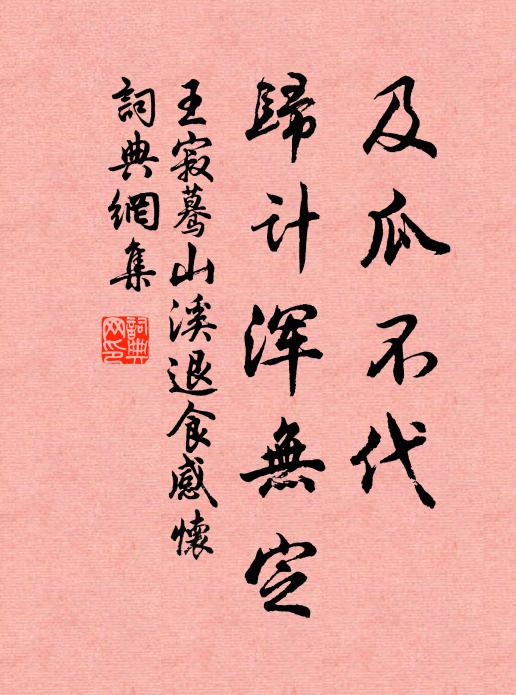 及瓜不代
歸计浑無定
王寂蓦山溪退食感懷
詞典網集
詞典网印